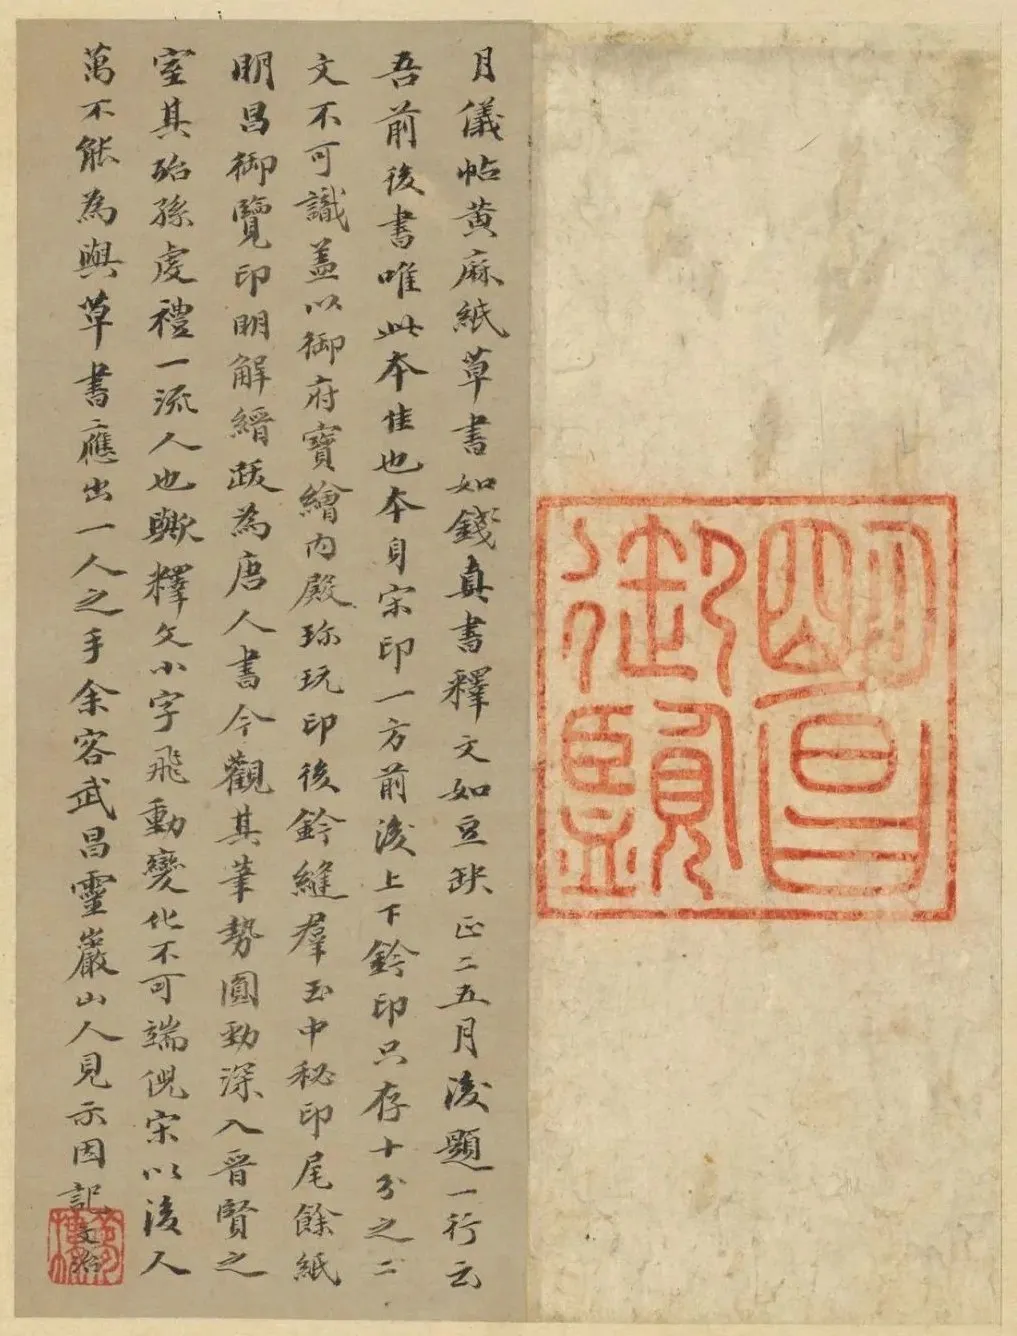 明昌
御覽
月儀帖黄麻紙草書如錢真書釋文如豆缺正二五月後題一行云
吾前後書唯此本佳也本身宋印一方前後上下鈐印只存十分之二
文不可識盖以御府寶繪内殿珎玩印後鈐縫羣玉中秘印尾餘紙
明昌御覽印明解縉跋為唐人書今觀其筆勢圓勁深入晋賢之
室其殆孫虔禮一流人也歟釋文小字飛動變化不可端倪宋以後人
萬不能為與草書應出一人之手余客武昌靈巖山人見示因記文治
夢樓